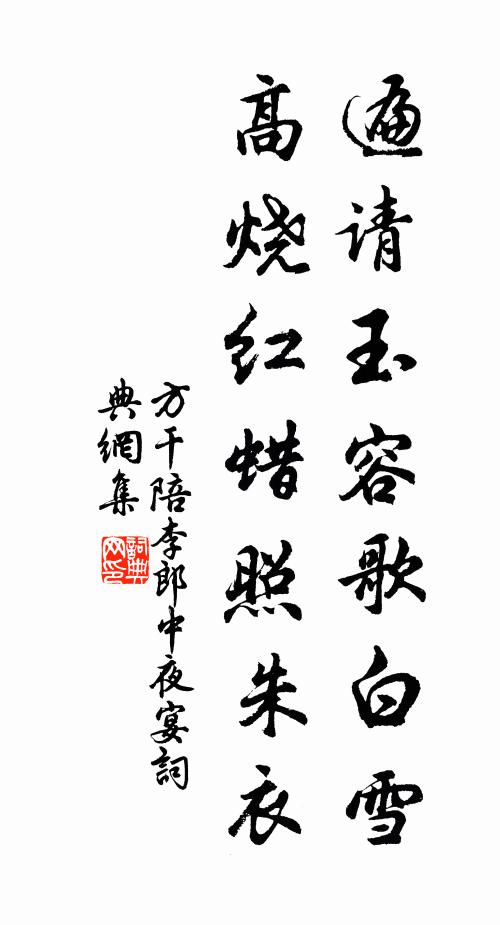 遍请玉容歌白雪
高烧红蜡照朱衣
方干陪李郎中夜宴詞
典網集
詞典
网印